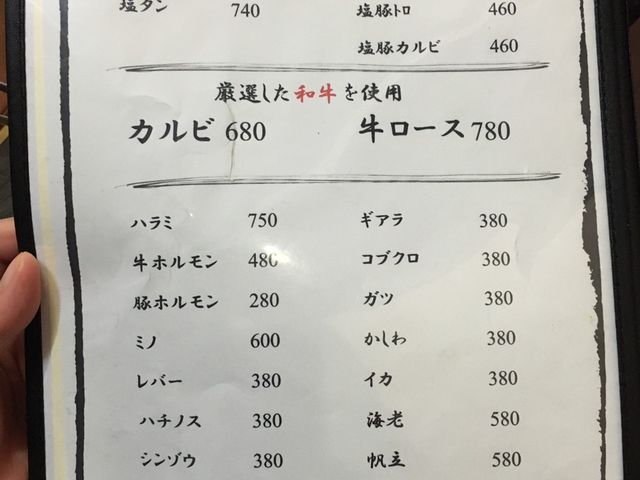 塩タン 740 塩豚トロ 460
塩豚カルビ 460
厳選した和牛を使用
カルビ 680 牛ロース 780
ハラミ 750 ギアラ 380
牛ホルモン 480 コブクロ 380
豚ホルモン 280 ガツ 380
ミノ 600 かしわ 380
レバー 380 イカ 380
ハチノス 380 海老 580
シンゾウ 380 帆立 580